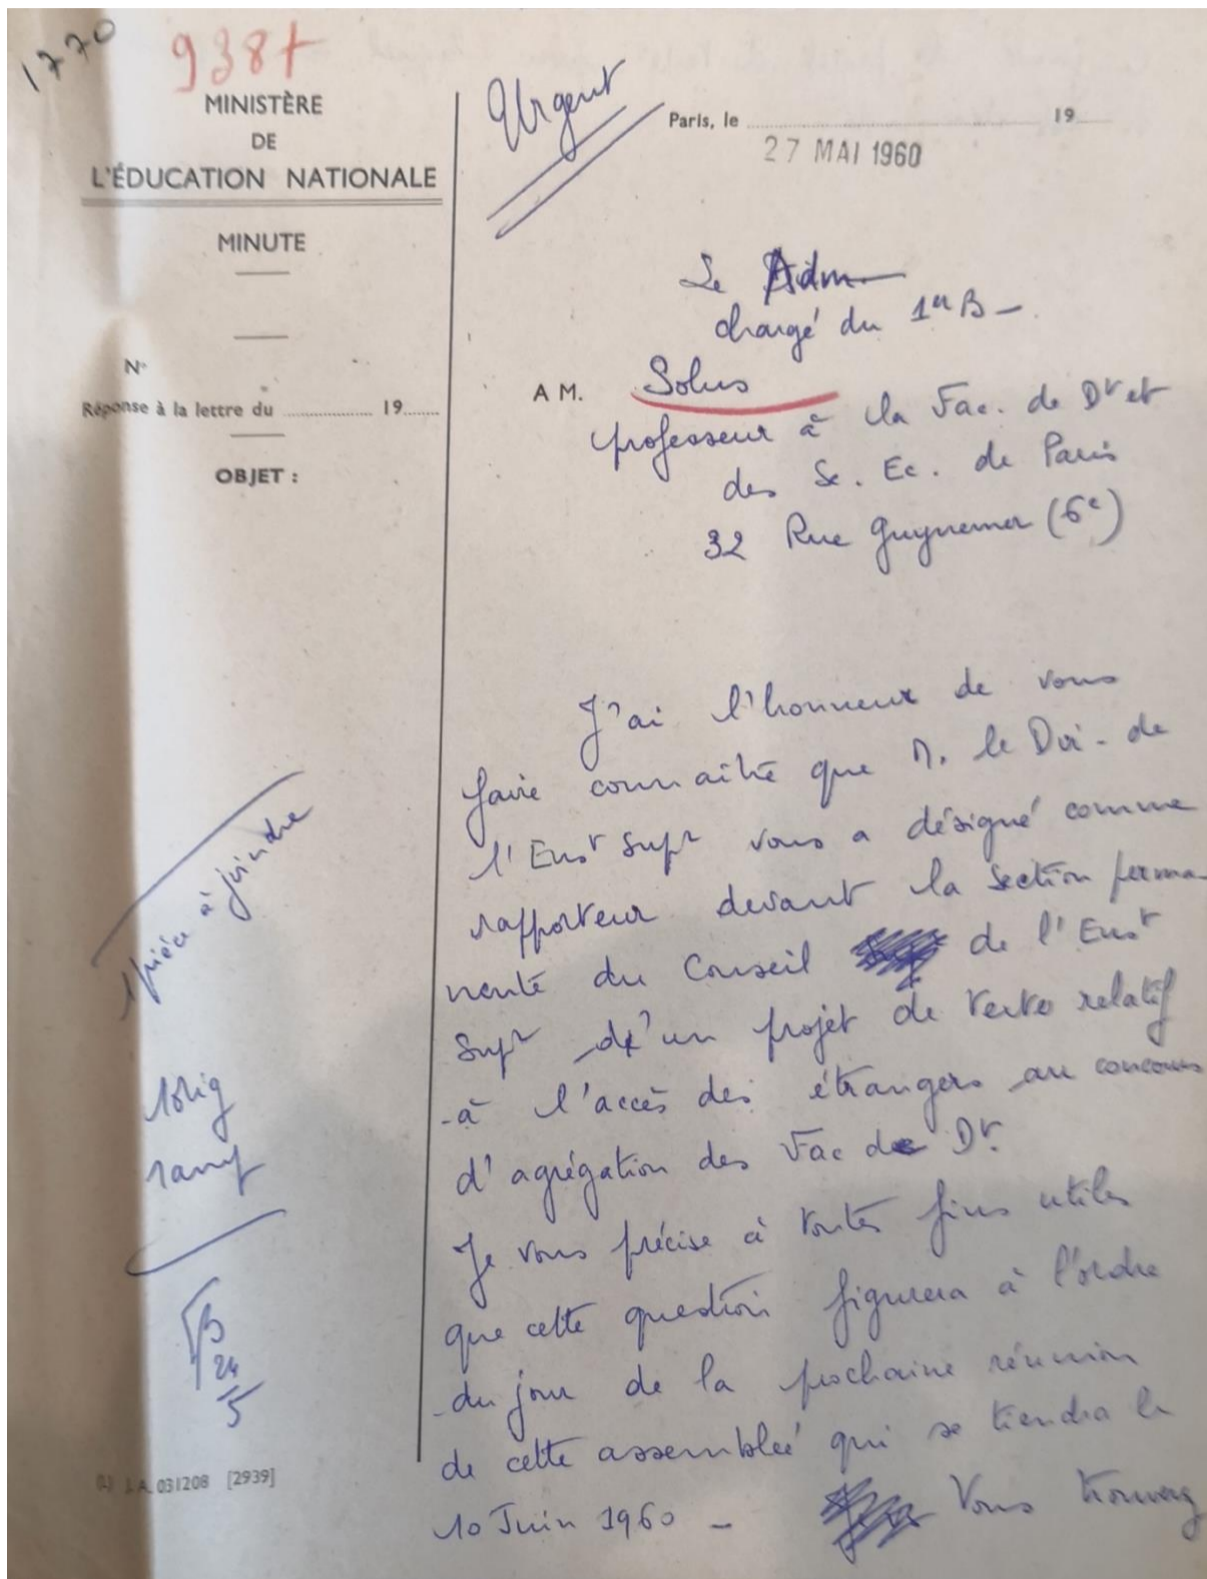 1770
938+
MINISTÈRE
DE
L'ÉDUCATION NATIONALE
MINUTE
N°
Réponse à la lettre du ........ 19......
OBJET :
Urgent
Paris, le ........ 19......
27 MAI 1960
Le Adm
chargé du 1er B -
A M. Solus
professeur à la Fac. de Dt et
des Sc. Ec. de Paris
32 Rue Guynemer (6e)
J'ai l'honneur de vous
faire connaître que M. le Dir. de
l'Enst Supr vous a désigné comme
rapporteur devant la section perma-
nente du Conseil de l'Enst
Supr d'un projet de texte relatif
à l'accès des étrangers au concours
d'agrégation des Fac de Dt.
Je vous précise à toutes fins utiles
que cette question figurera à l'ordre
du jour de la prochaine réunion
de cette assemblée qui se tiendra le
10 Juin 1960 - Vous trouverez
1 pièce à joindre
1 orig
B
24
5
(L) J.A. 031208 [2939]